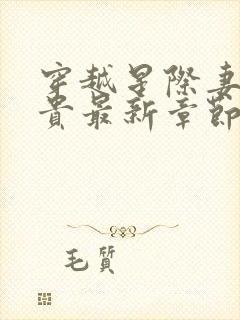 穿越星際妻
貴最新章節
毛質